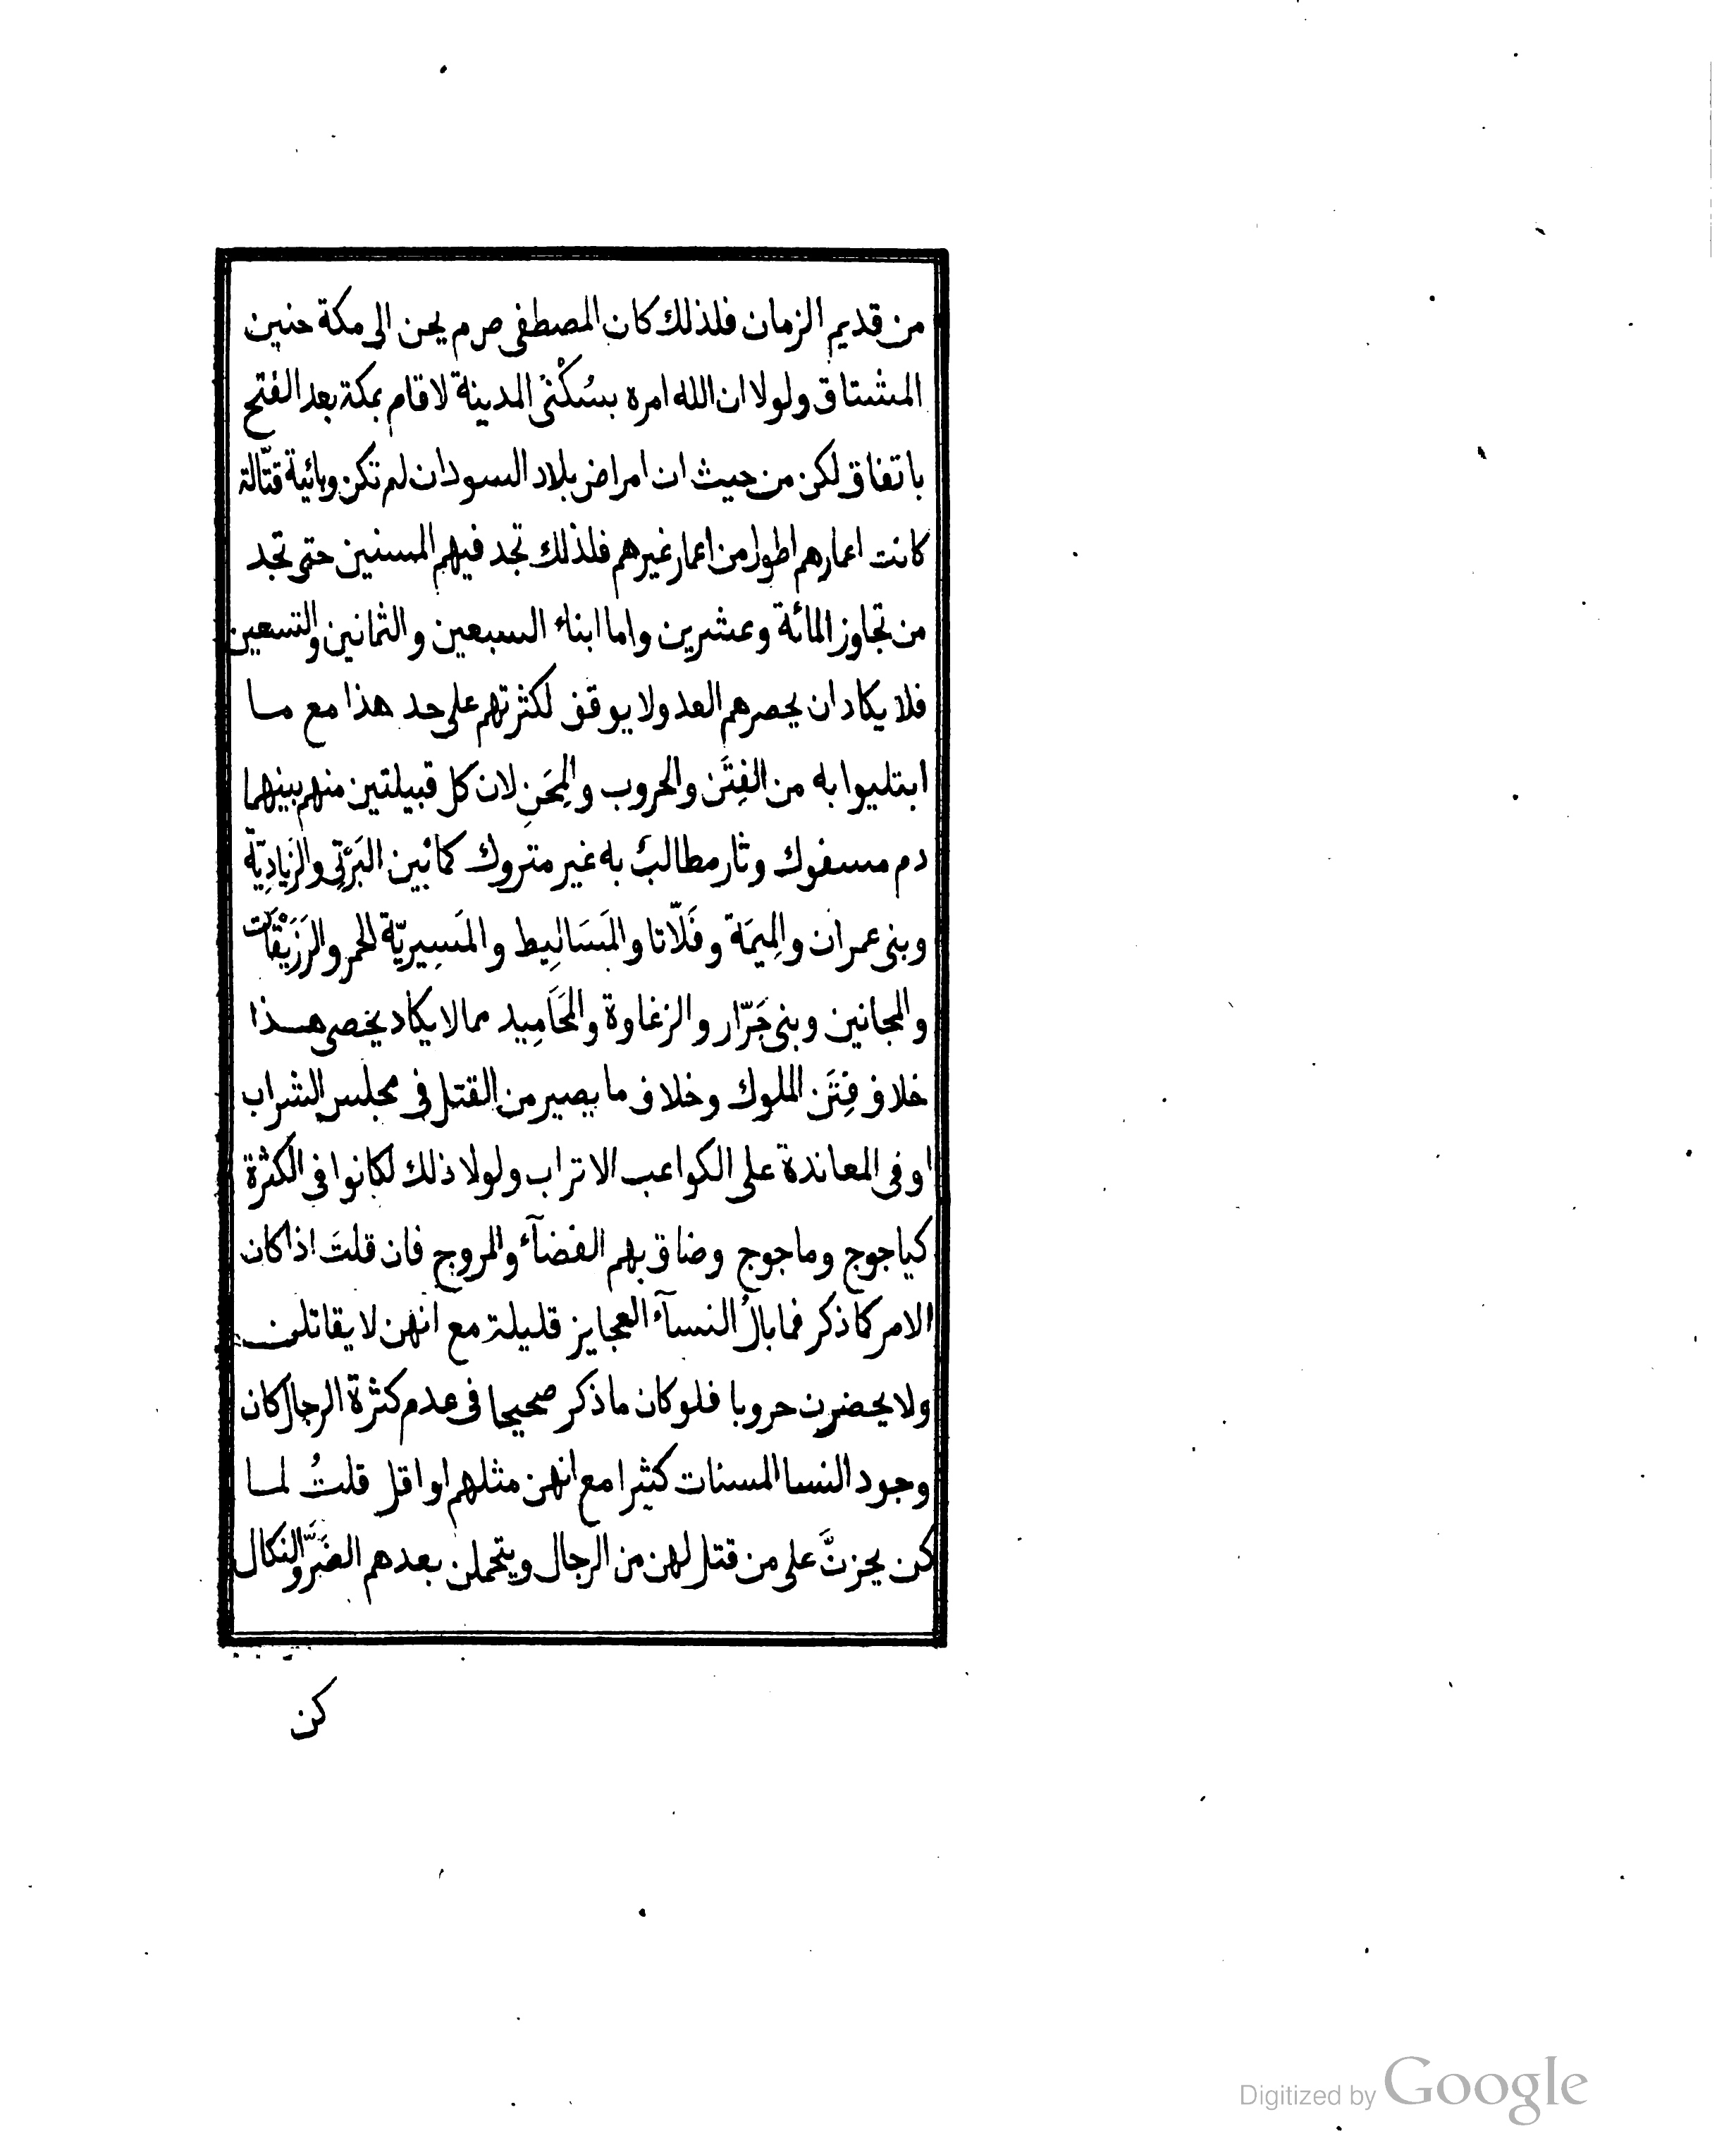 من قديم الزمان فلذلك كان المصطفى صم يحن الى مكة حنين
المشتاق ولولا ان الله امره بسُكْنَى المدينة لاقام بمكة بعد الفتح
باتفاق لكن من حيث ان امراض بلاد السودان لم تكن وبائية قتّالة
كانت اعمارهم اطول من اعمار غيرهم فلذلك تجد فيهم المسنين حتى تجد
من تجاوز المائة وعشرين واما ابناء السبعين والثمانين والتسعين
فلا يكاد ان يحصرهم العد ولا يوقف لكثرتهم على حد هذا مع ما
ابتليوا به من الفِتَن والحروب والمِحَنِ لان كل قبيلتين منهم بينهما
دم مسفوك وثار مطالبٌ به غير متروك كما بين البَرْتِى والزَيادِيّة
وبنى عمران والمِيمَة وفَلّاتا والمَسَالِيط والمَسِيرِيّة الحمر والرَزَيْقَات
والمجانين وبنى جَرّار والزغاوة والمَحَامِيد مما لا يكاد يحصى هذا
خلاف فِتَن الملوك وخلاف ما يصير من القتل فى مجلس الشراب
او فى المعاندة على الكواعب الاتراب ولولا ذلك لكانوا فى الكثرة
كياجوج وماجوج وضاق بهم الفضآء والمروج فان قلتَ اذا كان
الامر كما ذكر فما بالُ النسآء العجايز قليلة مع انهن لا يقاتلن
ولا يحضرن حروبا فلو كان ما ذكر صحيحا فى عدم كثرة الرجال كان
وجود النسا المسنات كثيرا مع انهن مثلهم او اقل قلتُ لما
كن يحزنَّ على من قتل لهن من الرجال ويتحملن بعدهم الضَرَّ والنكال
كن
Digitized by Google